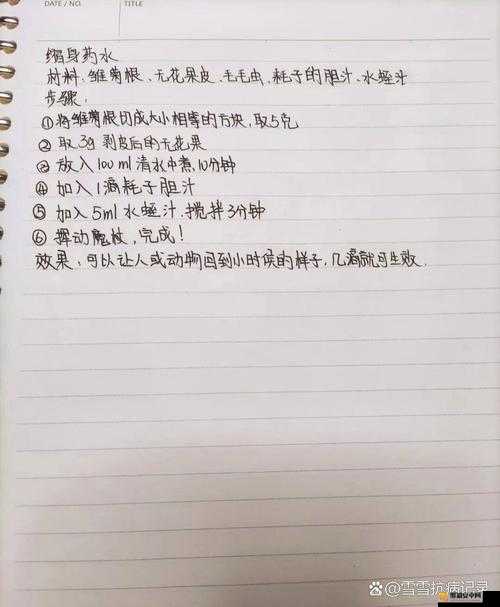 DATE / NO.
TITLE
缩身药水
材料：雏菊根、无花果皮、毛毛虫、耗子的胆汁、水蛭汁
步骤：
①将雏菊根切成大小相等的方块，取5克
②取3g剥皮后的无花果
③放入100ml清水中煮，10分钟
④加入1滴耗子胆汁
⑤加入5ml水蛭汁，搅拌3分钟
⑥挥动魔杖，完成！
效果：可以让人或动物回到小时候的样子，几滴就可生效．
雪雪抗病记录